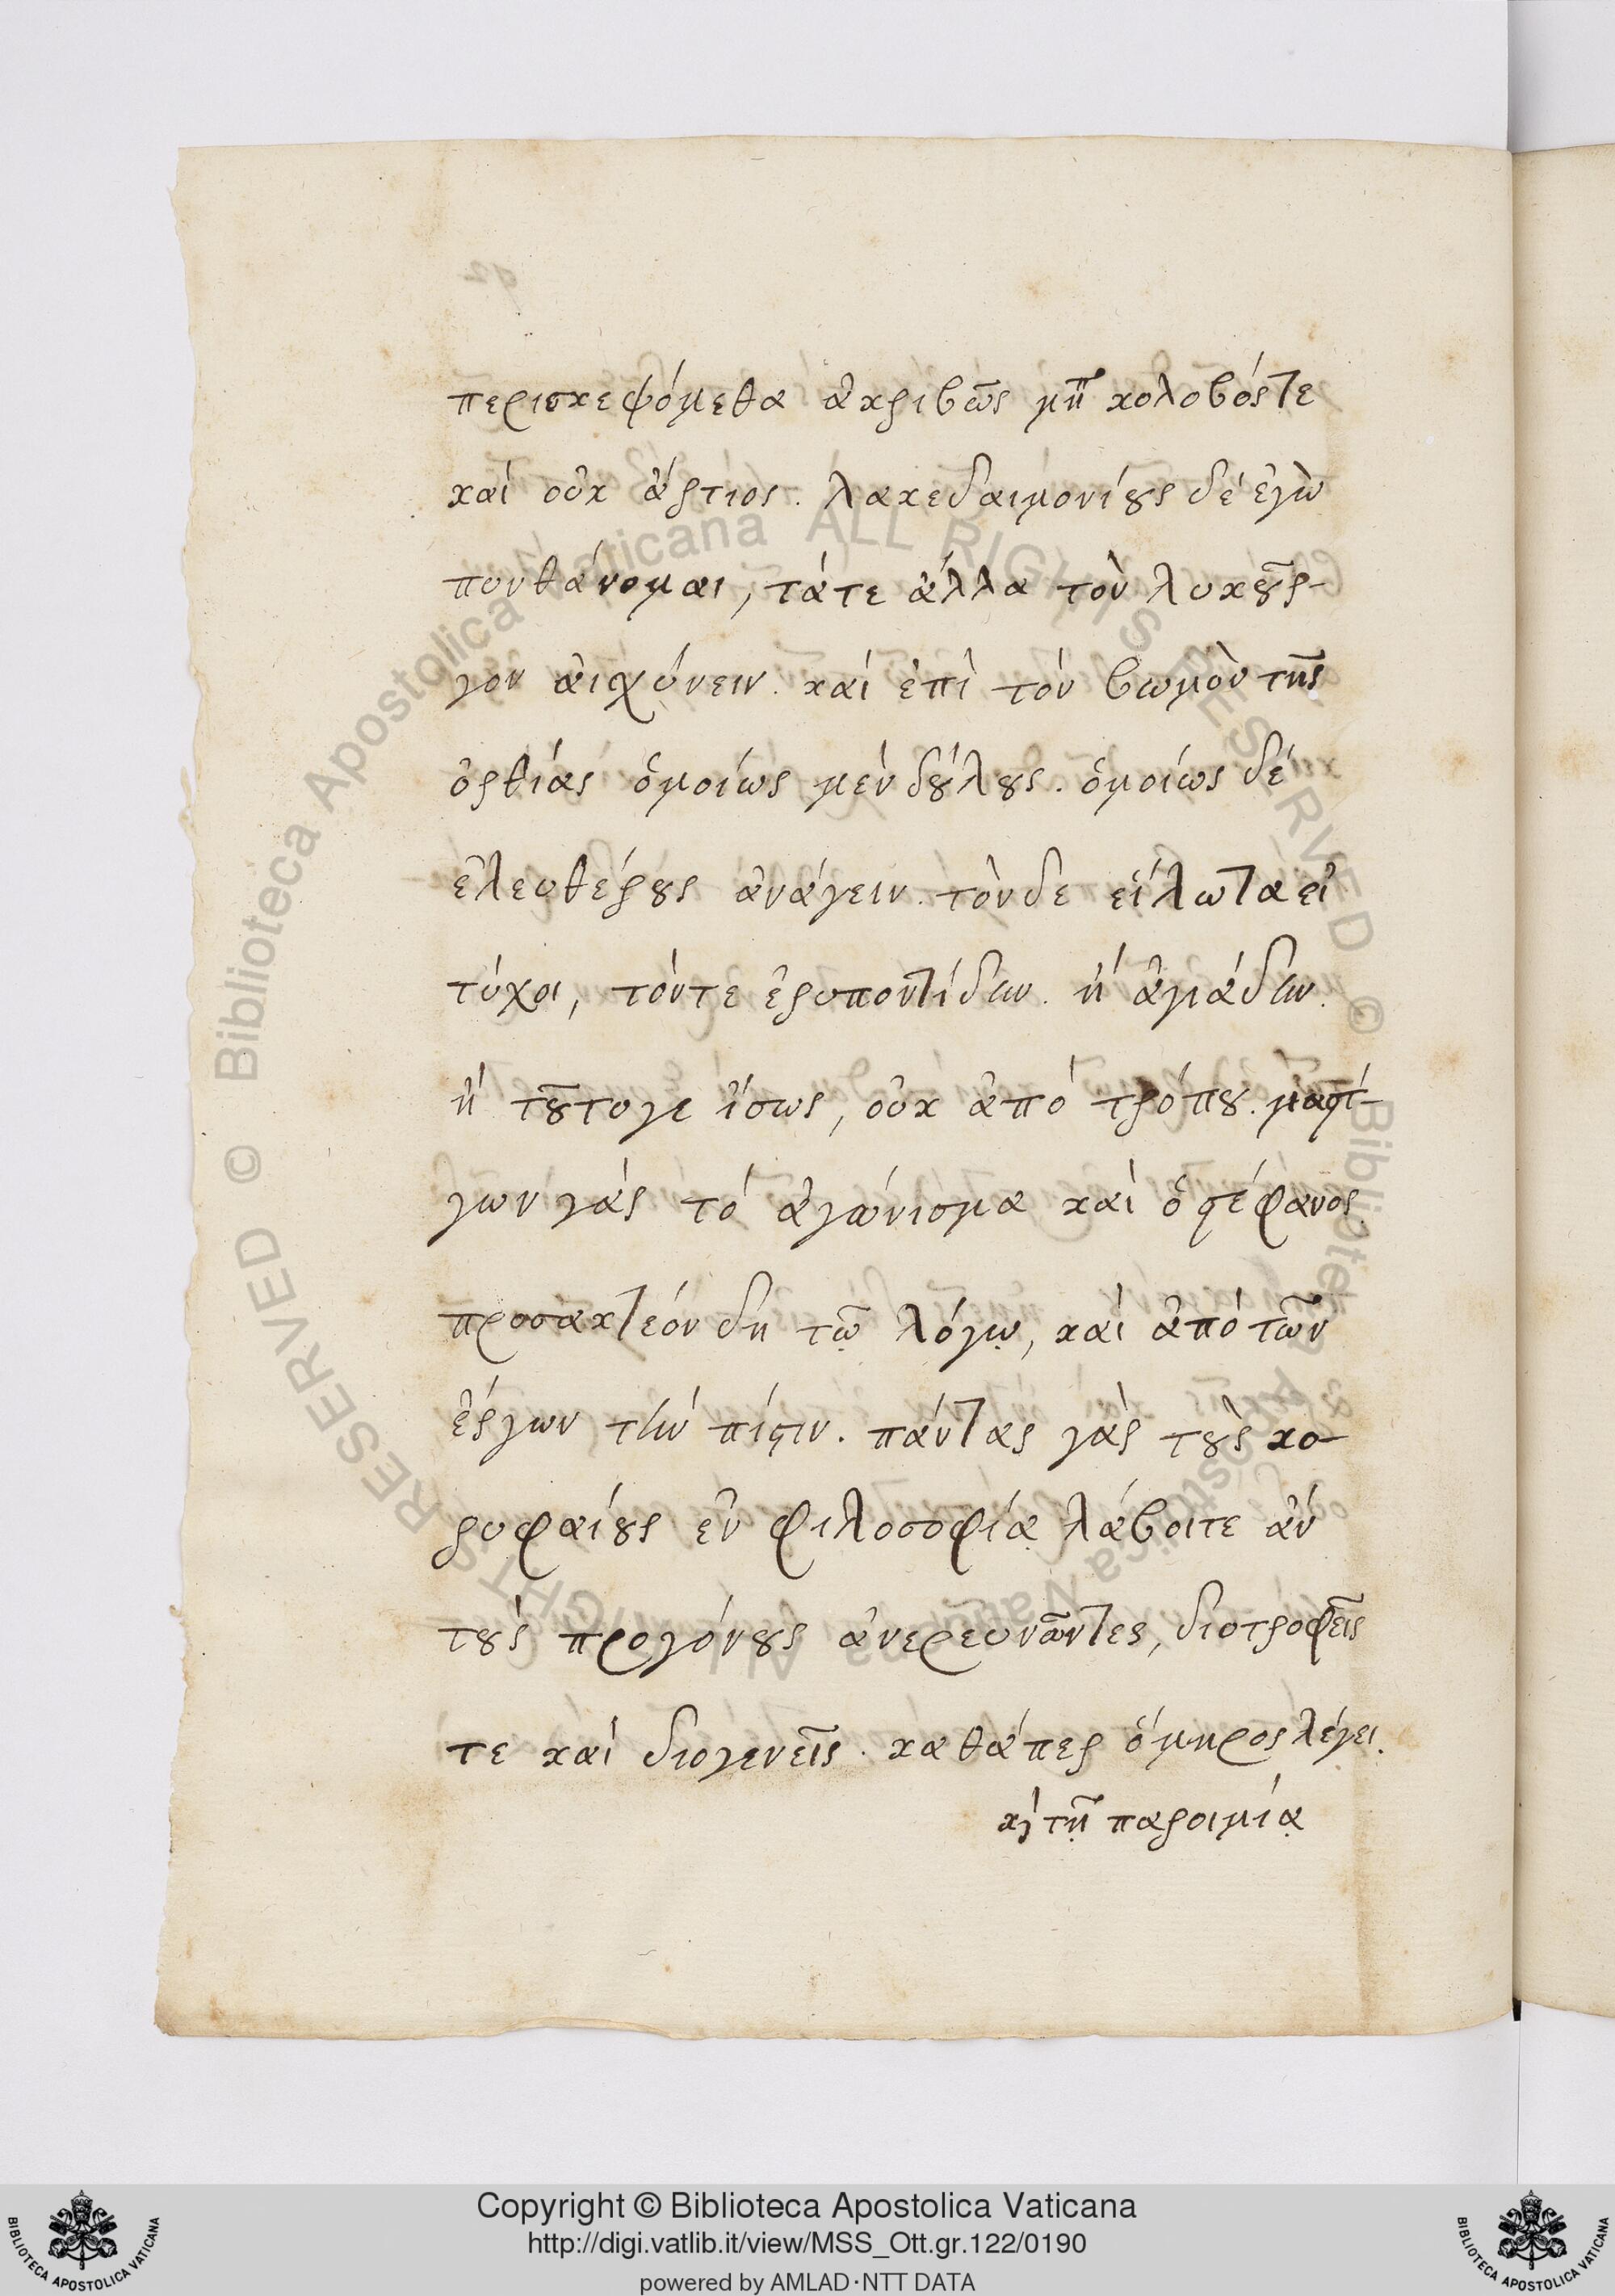 περισκεψόμεθα ἀκριβῶς μὴ κολοβός τε
καὶ οὐκ ἄρτιος. λακεδαιμονίους δὲ ἐγὼ
πυνθάνομαι, τά τε ἄλλα τὸν λυκοῦρ-
γον αἰσχύνειν. καὶ ἐπὶ τὸν βωμὸν τῆς
ὀρθίας ὁμοίως μὲν δούλους. ὁμοίως δὲ
ἐλευθέρους ἀνάγειν. τὸν δὲ εἵλωτα εἰ
τύχοι, τόν τε ἐρυποντίδην. ἢ ἀγιάδην.
ἢ τοῦτογε ἴσως, οὐκ ἀπὸ τρόπου. μαστί-
γων γὰρ τὸ ἀγώνισμα καὶ ὁ στέφανος.
προσακτέον δὴ τῷ λόγῳ, καὶ ἀπὸ τῶν
ἔργων τὴν πίστιν. πάντας γὰρ τοὺς κο-
ρυφαίους ἐν φιλοσοφίᾳ λάβοιτε ἂν
τοὺς προγόνους ἀνερευνῶντες, διοτροφεῖς
τε καὶ διογενεῖς. καθάπερ ὅμηρος λέγει.
κỳ τῇ παροιμίᾳ
Copyright © Biblioteca Apostolica Vaticana
http://digi.vatlib.it/view/MSS_Ott.gr.122/0190
powered by AMLAD·NTT DATA
© Biblioteca Apostolica Vaticana ALL RIGHTS RESERVED
© Biblioteca Apostolica Vaticana ALL RIGHTS RESERVED
BIBLIOTECA APOSTOLICA VATICANA
BIBLIOTECA APOSTOLICA VATICANA